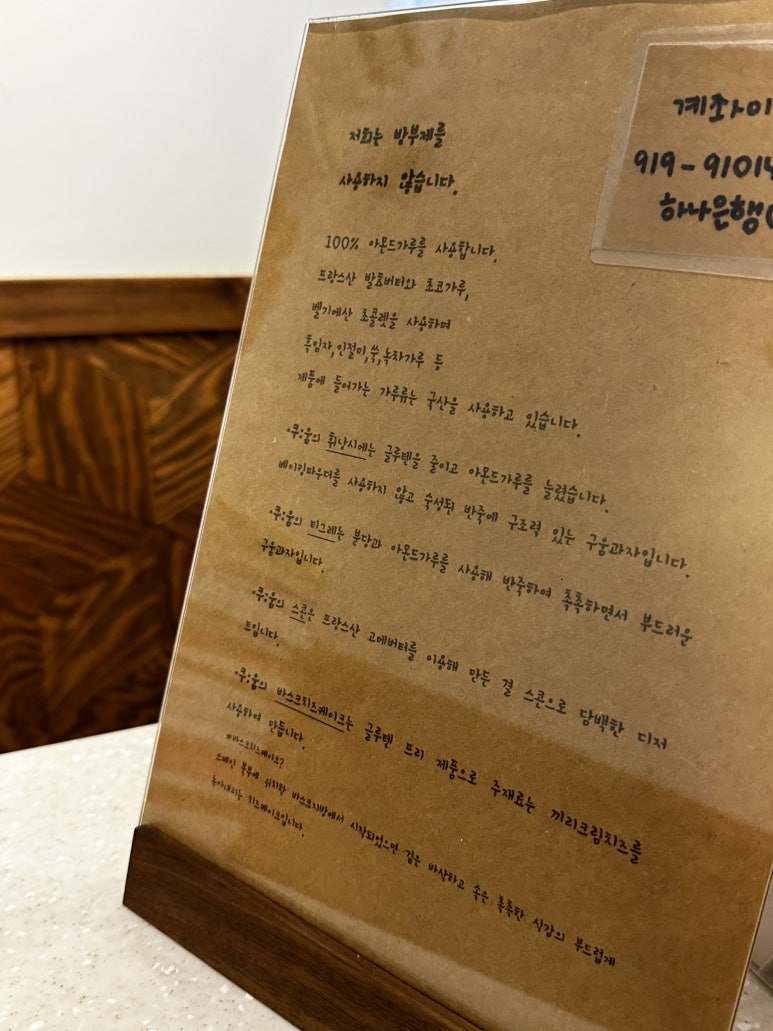 저희는 방부제를
사용하지 않습니다.
100% 아몬드가루를 사용합니다.
프랑스산 발효버터와 초코가루,
벨기에산 초콜렛을 사용하며
흑임자,인절미,쑥,녹차가루 등
제품에 들어가는 가루류는 국산을 사용하고 있습니다.
·쿠;움의 휘낭시에는 글루텐을 줄이고 아몬드가루를 늘렸습니다.
베이킹파우더를 사용하지 않고 숙성된 반죽에 구조력 있는 구움과자입니다.
·쿠;움의 티그레는 분당과 아몬드가루를 사용해 반죽하여 촉촉하면서 부드러운
구움과자입니다.
·쿠;움의 스콘은 프랑스산 고메버터를 이용해 만든 결 스콘으로 담백한 디저
트입니다.
·쿠;움의 바스크치즈케이크는 글루텐 프리 제품으로 주재료는 끼리크림치즈를
사용하여 만듭니다.
#바스크치즈케이크?
스페인 북부에 위치한 바스크지방에서 시작되었으면 겉은 바삭하고 속은 촉촉한 식감의 부드럽게
녹아내리는 치즈케이크입니다.
계좌이
919-91014
하나은행(